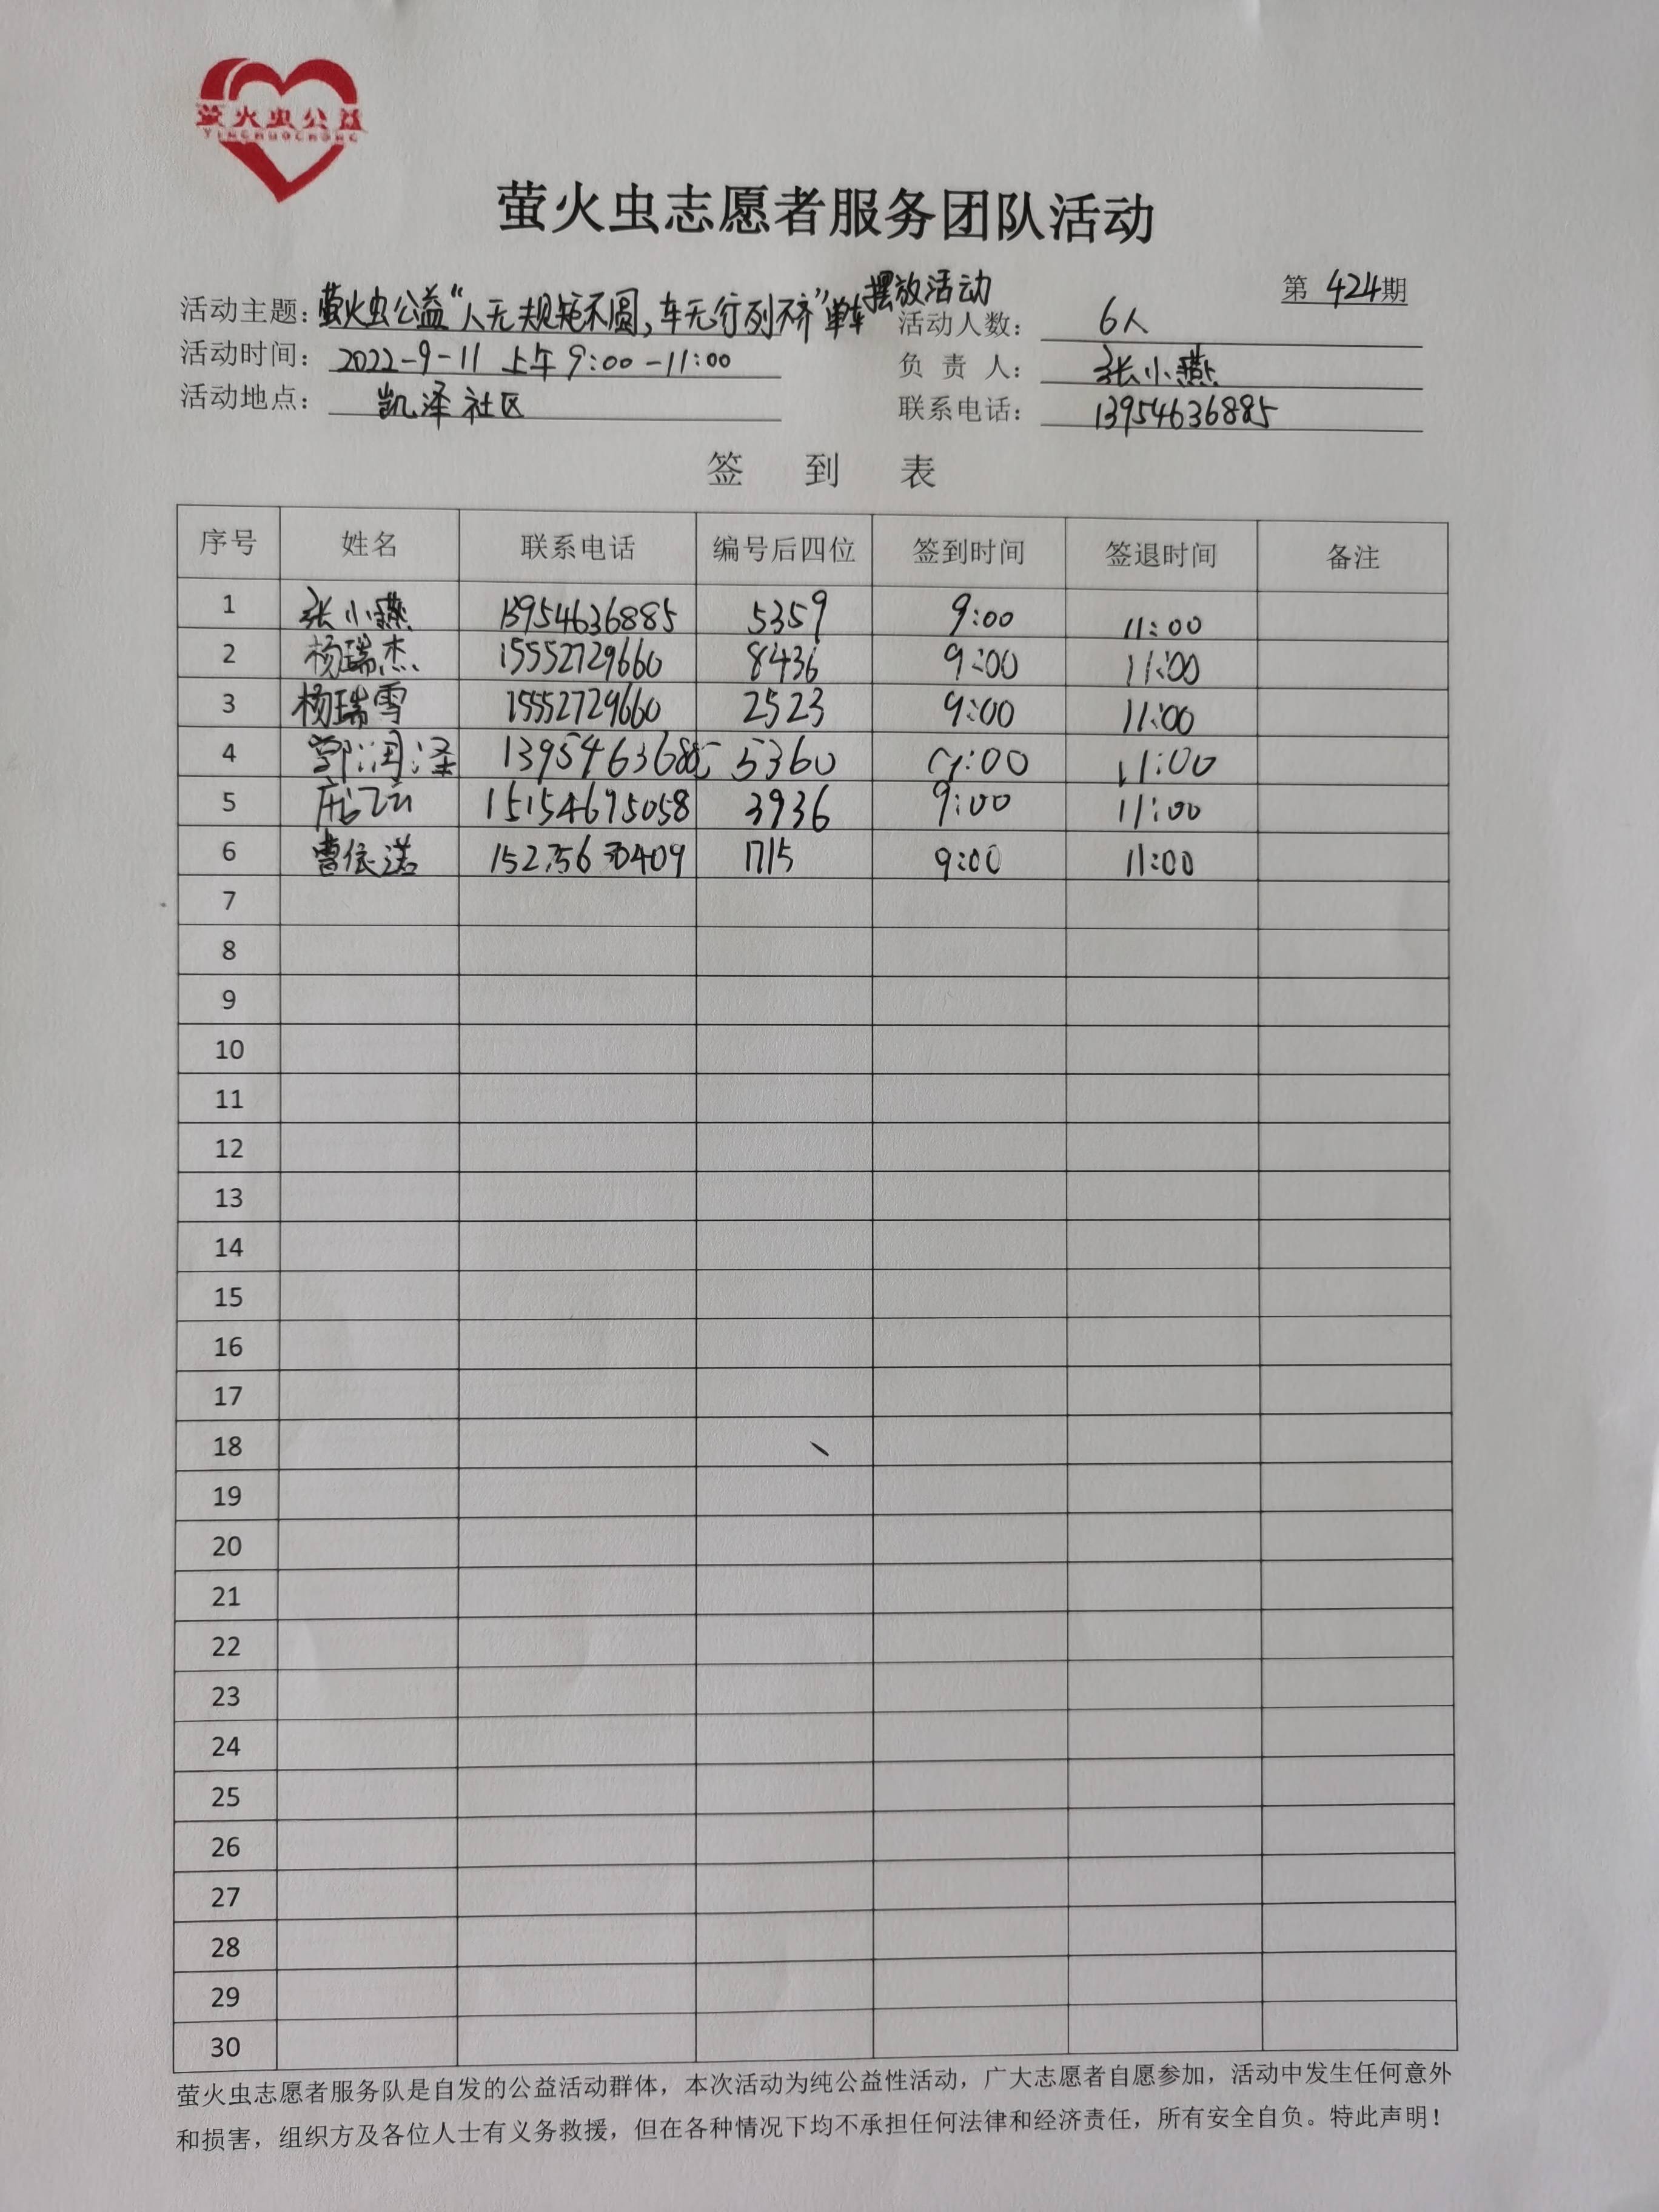 萤火虫公益
YINGHUOCHONG
萤火虫志愿者服务团队活动
第 424期
活动主题：萤火虫公益“人无规矩不圆，车无行列不齐”单车摆放活动
活动人数： 6人
活动时间： 2022-9-11 上午 9:00-11:00
负 责 人： 张小燕
活动地点： 凯泽社区
联系电话： 13954636885
签 到 表
序号 姓名 联系电话 编号后四位 签到时间 签退时间 备注
1 张小燕 13954636885 5359 9:00 11:00
2 杨瑞杰 15552729660 8436 9:00 11:00
3 杨瑞雪 15552729660 2523 9:00 11:00
4 润泽 13954636885 5360 9:00 11:00
5 15154695058 3936 9:00 11:00
6 曹依诺 1715 9:00 11:00
7
8
9
10
11
12
13
14
15
16
17
18
19
20
21
22
23
24
25
26
27
28
29
30
萤火虫志愿者服务队是自发的公益活动群体，本次活动为纯公益性活动，广大志愿者自愿参加，活动中发生任何意外
和损害，组织方及各位人士有义务救援，但在各种情况下均不承担任何法律和经济责任，所有安全自负。特此声明！